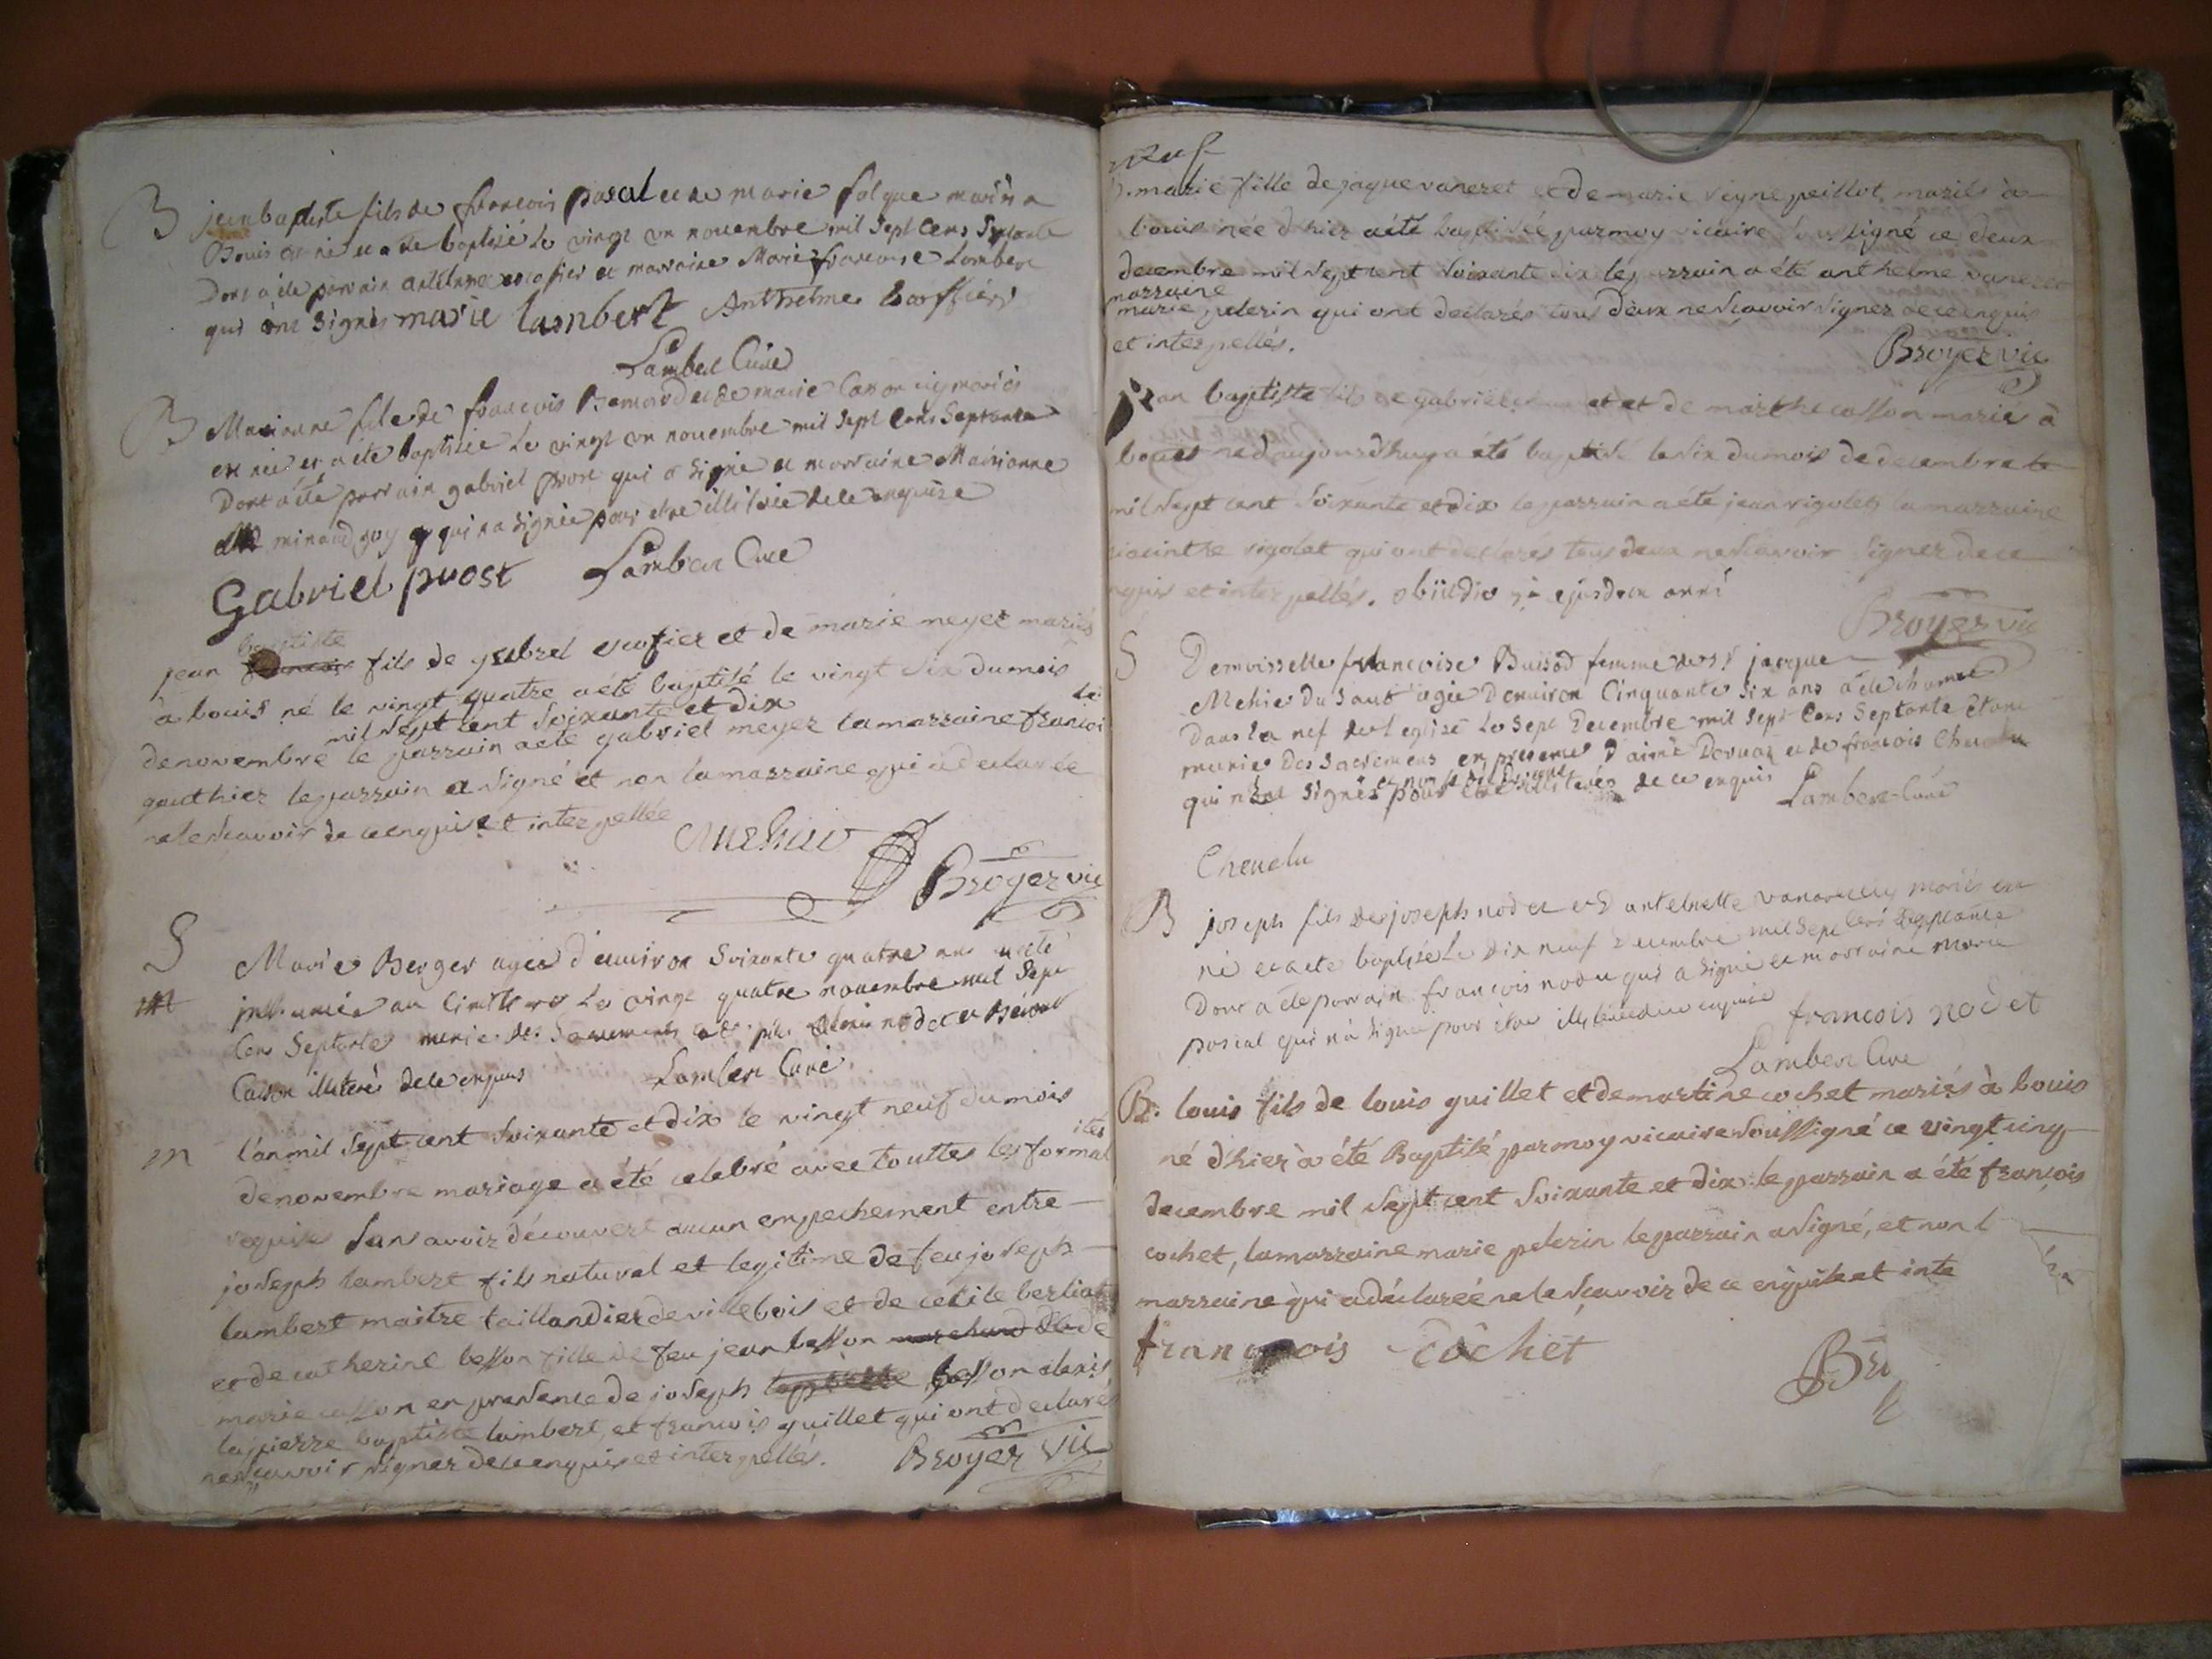 B jean baptiste fils de francois pascal et de marie falque mariés a
Bouis est né et a été baptisé le vingt un novembre mil Sept Cens Septante
Dont a été parrain antelme escofier et marraine Marie francoise Lambert
qui ont Signés marie lambert Anthelme
Lambert Curé
B Marianne fille de francois Bernard et de marie mariés
est née et a été baptisée Le vingt un novembre mil Sept Cens Septante
Dont a été parrain gabriel prost qui a Signé et marraine Marianne
minaud goy qui na Signée pour etre illiterée de ce enquise
Gabriel prost Lambert Curé
baptiste
jean francois fils de gabriel escofier et de marie meyer mariés
à bouis né le vingt quatre a été baptisé le vingt six du mois
mil Sept cent Soixante et dix
de novembre le parrain a ete gabriel meyer la marraine francoi
gauthier le parrain a Signé et non la marraine qui a declarée
ne le scavoir de ce enquise et interpellée
Broyer vic
S Marie Berger agée d'environ Soixante quatre ans a été
inhumée au Cimittiere Le vingt quatre novembre mil Sept
Cens Septante munie des Sacrements
Cason illiterés de ce enquis Lambert Curé
m l'an mil Sept cent Soixante et dix le vingt neuf du mois
de novembre mariage a été celebré avec touttes les formal
ités
requises Sans avoir découvert aucun empechement entre
joseph lambert fils naturel et legitime de feu joseph
lambert maitre taillandier de villebois et de cecile berliat
et de catherine besson fille de feu jean besson marchand de
marie casson en presence de joseph besson alexis
lapierre baptiste lambert, et francois guillet qui ont declarés
ne scavoir signer de ce enquis et interpellés. Broyer vic
B. marie fille de jaque vaneret et de marie vigne peillot, mariés à
bouis née d'hier a été baptisée par moy vicaire Soussigné ce deux
decembre mil Sept cent Soixante dix le parrain a été anthelme vaneret
marraine
marie pelerin qui ont declarés tous deux ne Scavoir Signer de ce enquis
et interpellés.
Broyer vic
Jean baptiste fils de gabriel et de marthe casson mariés à
bouis né d'aujourd'huy a été baptisé le Six du mois de decembre
mil Sept cent Soixante et dix le parrain a été jean rigolet la marraine
iacinthe rigolet qui ont declarés tous deux ne Scavoir Signer de ce
nquis et interpellés. obiit die ejusdem anni
Broyer vic
S Demoisselle francoise Buisod femme de Sr jacque
Mehier du Saut agée D'environ Cinquante Six ans a été inhumée
Dans La nef de l'eglise Le Sept Decembre mil Sept Cens Septante étant
munie Des Sacremens en presence D'aimé Dervaz et de francois Chenelu
qui n'ont Signés pour etre illiterés de ce enquis Lambert Curé
Chenelu
B joseph fils de joseph nodet et D'antelmette mariés
né et a été baptisé Le Dix neuf Decembre mil Sept Cens Septante
Dont a été parrain francois nodet qui a Signé et marraine marie
pascal qui n'a Signé pour etre illiterée de ce enquise francois nodet
Lambert Curé
B. louis fils de louis guillet et de martine cochet mariés à bouis
né d'hier à été Baptisé par moy vicaire Soussigné ce vingt cinq
decembre mil Sept cent Soixante et dix le parrain a été francois
cochet, la marraine marie pelerin le parrain a Signé, et non l
marraine qui a déclarée ne le Scavoir de ce enquise et inte
francois Cochet
Bro